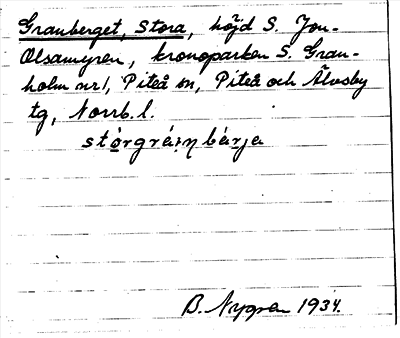 Granberget, Stora, höjd S. Jon-
Olsamyren, kronoparken S. Gran-
holm nr 1, Piteå sn, Piteå och Älvsby
tg, Norrb. l.
stórgráiṇbárja
B. Nygren 1934.